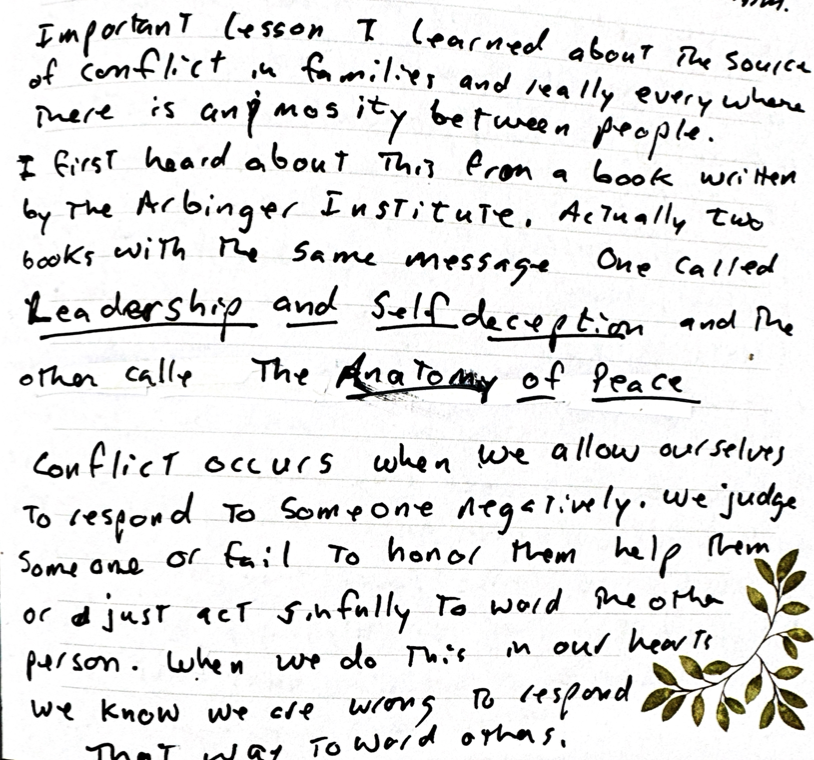 Important lesson I learned about the source
of conflict in families and really everywhere
there is animosity between people.
I first heard about this from a book written
by the Arbinger Institute. Actually two
books with the same message One called
Leadership and Self deception and the
other calle The Anatomy of Peace
Conflict occurs when we allow ourselves
to respond to someone negatively. We judge
someone or fail to honor them help them
or just act sinfully to ward the other
person. When we do this in our hearts
we know we are wrong to respond
that way toward others.